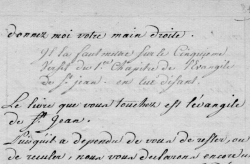 donnez moi votre main droite.
Il la faut mettre sur le Cinquieme
Verset du 1er Chapitre de l'évangile
de St jean - en lui disant.
Le livre que vous touchez est l'évangile
de St Jean.
Puisqu'il a dépendu de vous de rester, ou
de reculer, nous vous declarons encore